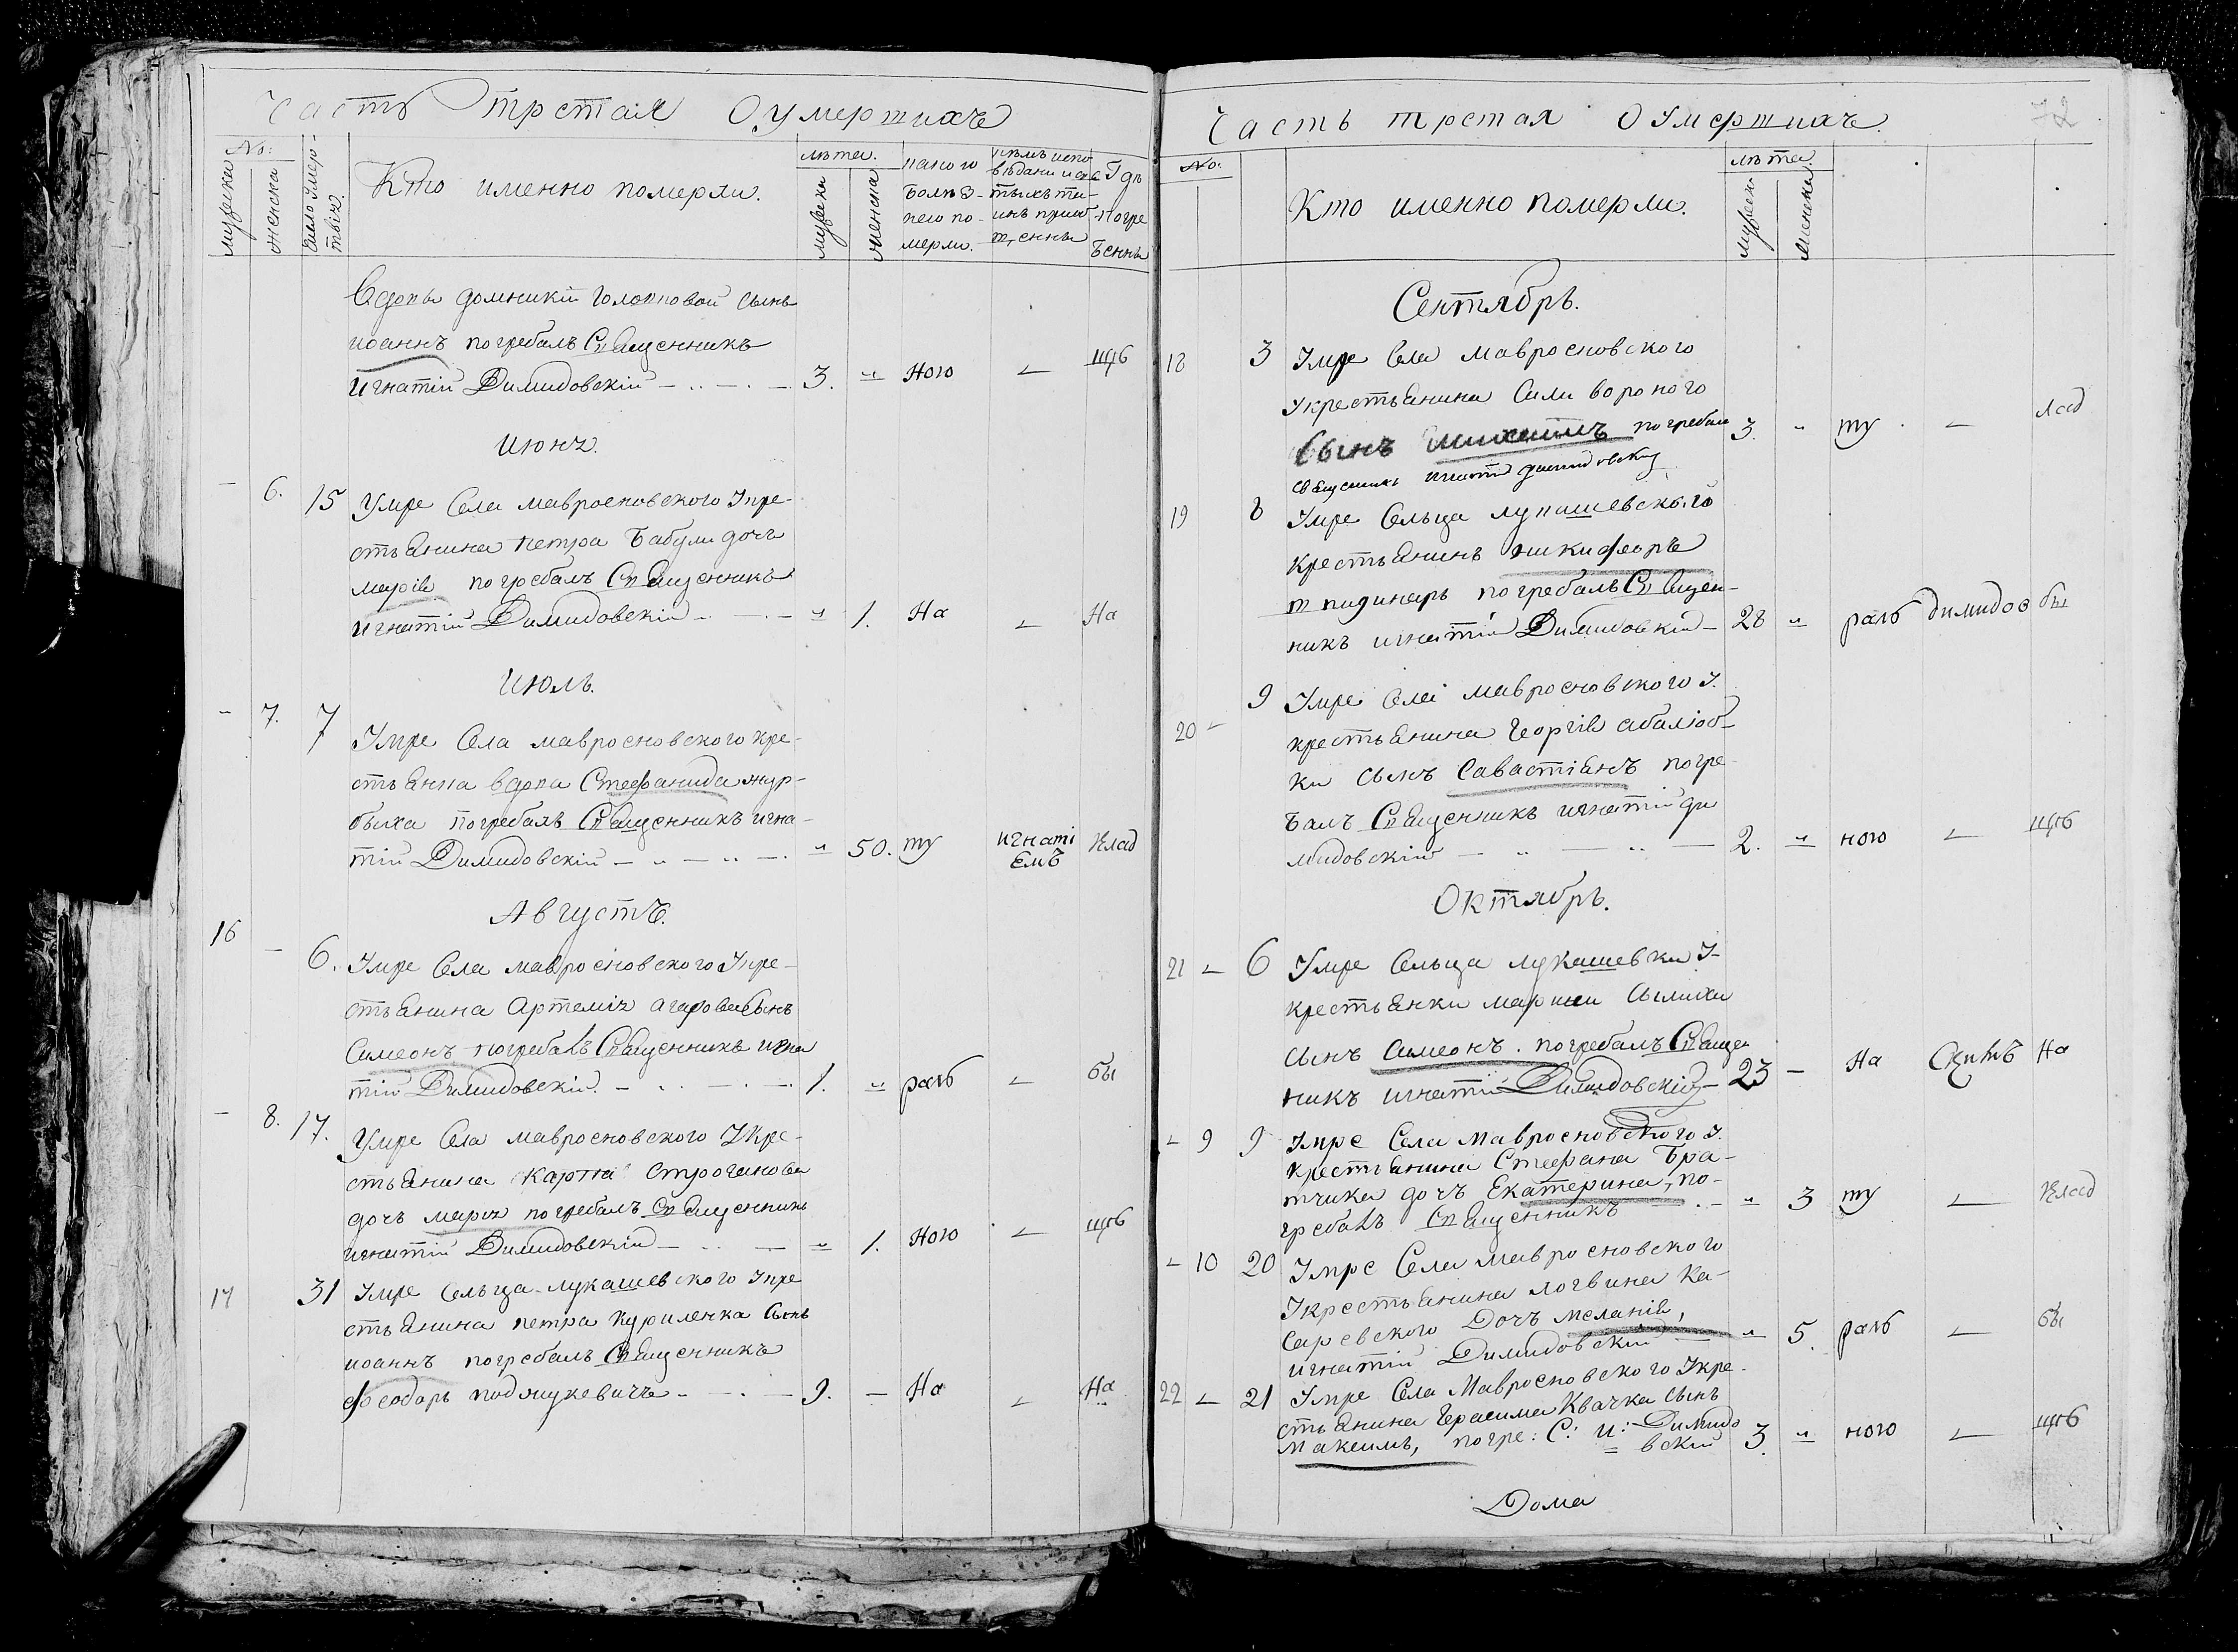 Часть третая О умершихъ
No:
мужеска
женска
Число умер
твія
Кто именно померли.
лѣта.
мужеска
женска
какого
болѣз-
нею по-
мерли.
кѣмъ испо
вѣдани и свѧ
тыхъ та-
инъ приоб-
щенны
Гдѣ
Погре
бенны
Вдовы домникіи Голоповой сынъ
иоаннъ погребалъ Священникъ
игнатій Димидовскій 3. " ною - щѣ
Июнъ.
- 6. 15 Умре Села мавроеновского Укре-
стьянина петра Бабули дочь
маріѧ погребалъ Священникъ
игнатій Димидовскій " 1. На - На
Июль.
- 7. 7 Умре Села мавросновского кре-
стьянка вдова Стефанида жур-
быха погребалъ Священникъ игна-
тій Димидовскій " 50. ту игнаті Клад
емъ
Августъ.
16 - 6. Умре Села мавросновского Укре-
стьянина Артемія агафова сынъ
Симеонъ погребалъ Священникъ игна
тій Димидовскій 1. " раль - бы
- 8. 17. Умре Села мавросновского Укре-
стьянина Карпа Строганова
дочь марія погребалъ Священникъ
игнатій Димидовскій " 1. ною - щѣ
17 31 Умре Сельца лукашевского Укре
стьянина петра куриленка Сынъ
иоаннъ погребалъ Священникъ
Феодоръ подлукевичъ 9. - На - На
Часть третая О Умершихъ.
72
No.
Кто именно померли.
лѣта.
мужеска
женска
Сентябрь.
18 3 Умре Села мавросновского
Укрестьянина Сили вороного
Сынъ Михаилъ погребал 3. " ту - лад
священникъ игнатій димидовскій
19 8 Умре Сельца лукашевского
крестьянинъ никифоръ
погребалъ Священ-
никъ игнатій Димидовскій 28 " раль димидов бы
20 - 9 Умре Села мавросновского У.
крестьянина Георгіѧ абалюб-
ки Сынъ Савастіянъ погре-
балъ Священникъ игнатій ди
мидовскій 2. " ною - щѣ
Октябрь.
21 - 6 Умре Сельца лукашевки У-
крестьянки марии Силихи
сынъ Симеонъ. погребалъ Священ
никъ игнатій Димидовскій 23 - На На
- 9 9 Умре Села Мавросновского У.
крестьянина Стефана Бра-
тчика дочь Екатерина, по-
гребалъ Священникъ " 3 ту - Клад
- 10 20 Умре Села мавросновского
Укрестьянина логвина Ка-
саревского Дочъ меланіѧ,
игнатій Димидовскій " 5. раль - бы
22 - 21 Умре Села Мавросновского Укре-
стьянина Герасима Квачка сынъ
Максимъ, погре: С: и: Димидо
вскій 3. " ною - щѣ
Дома